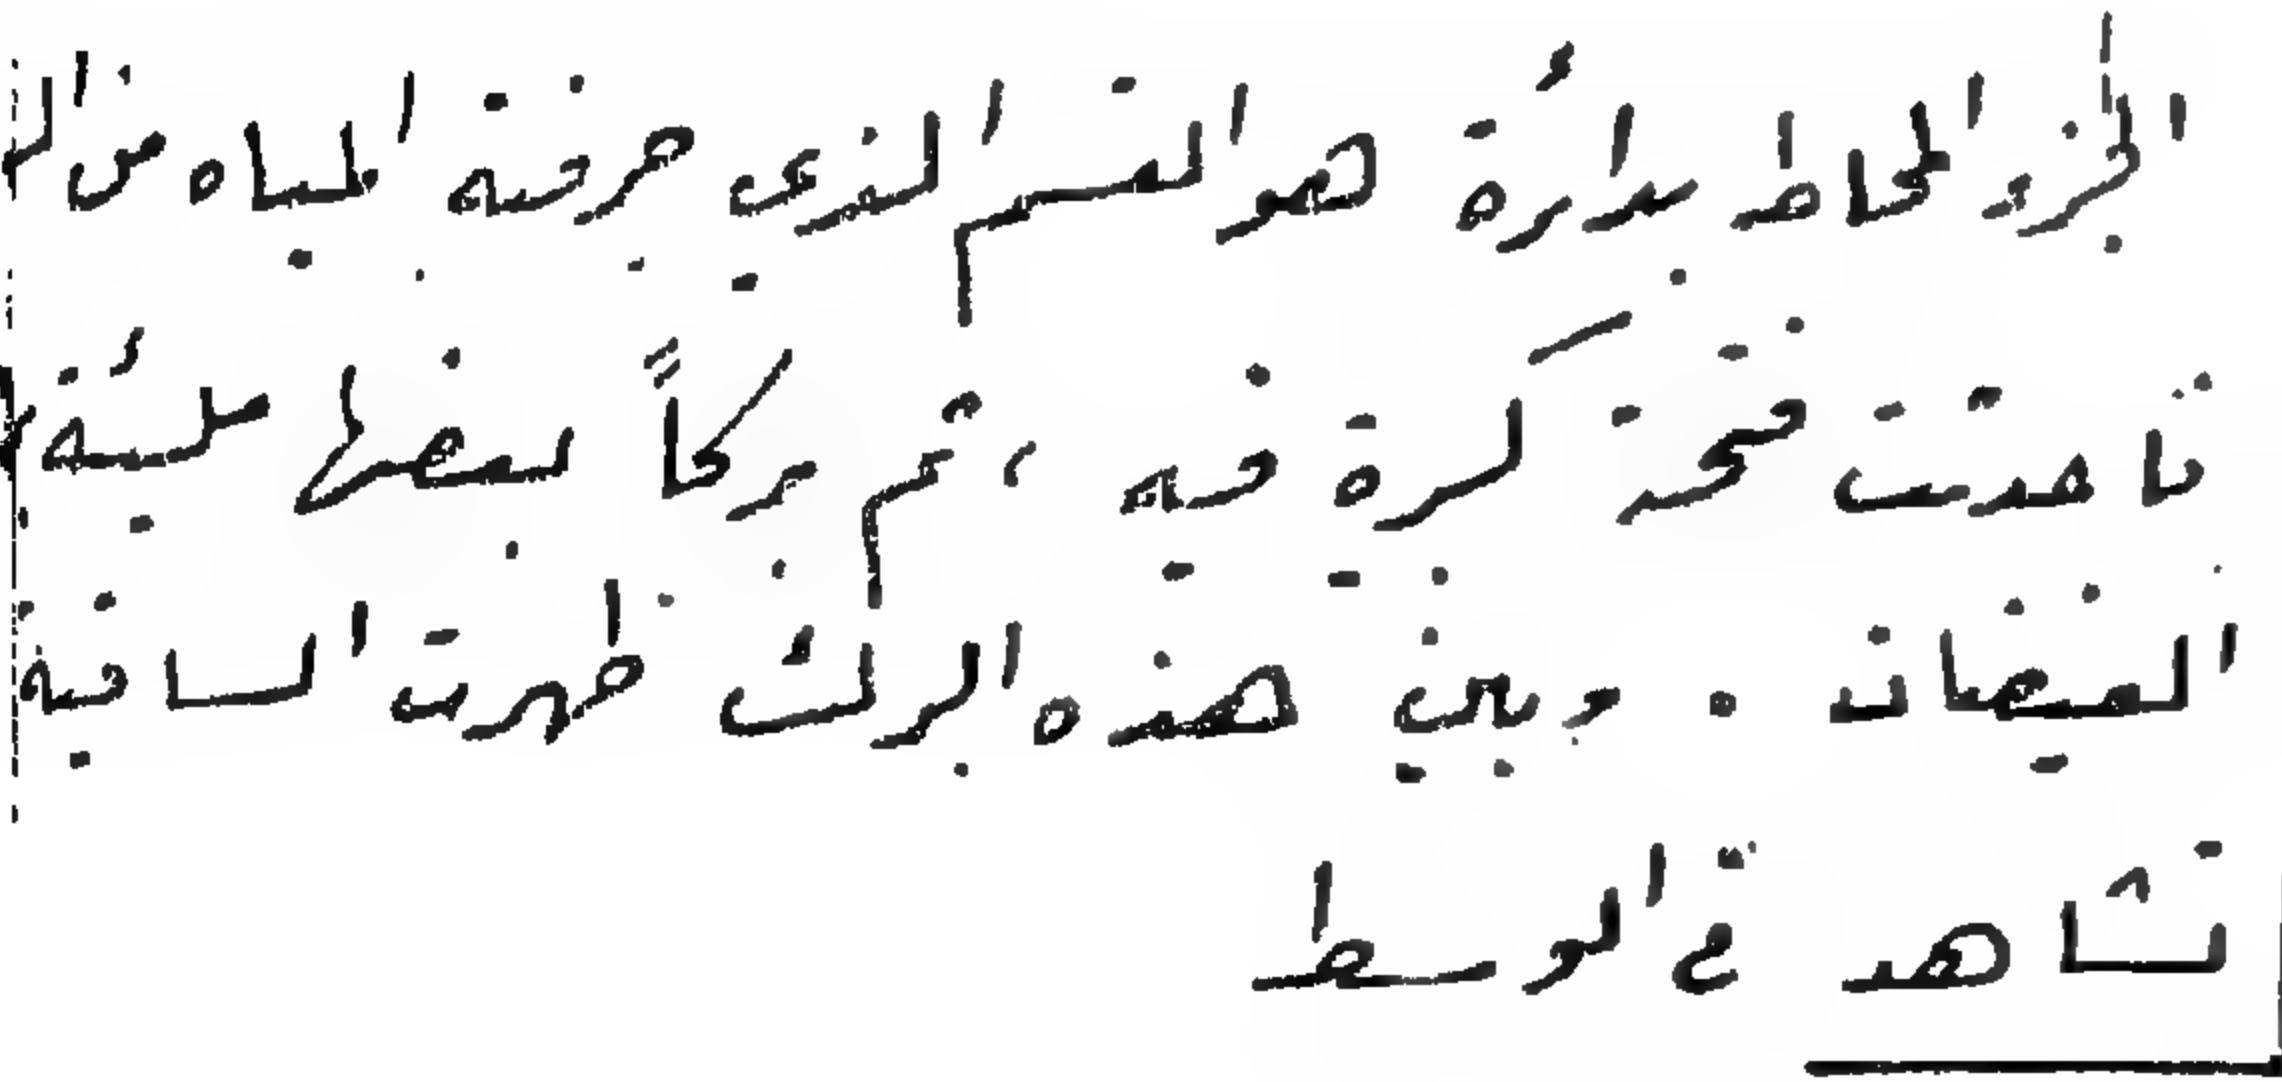 الجزء المحاط بدائرة هو القسم الذي جرفته المياه من
فأحدثت فتحة كبيرة فيه ، ثم بركاً بعضها مليئة
الفيضان . وبين هذه البرك ظهرت الساقية
تشاهد في الوسط